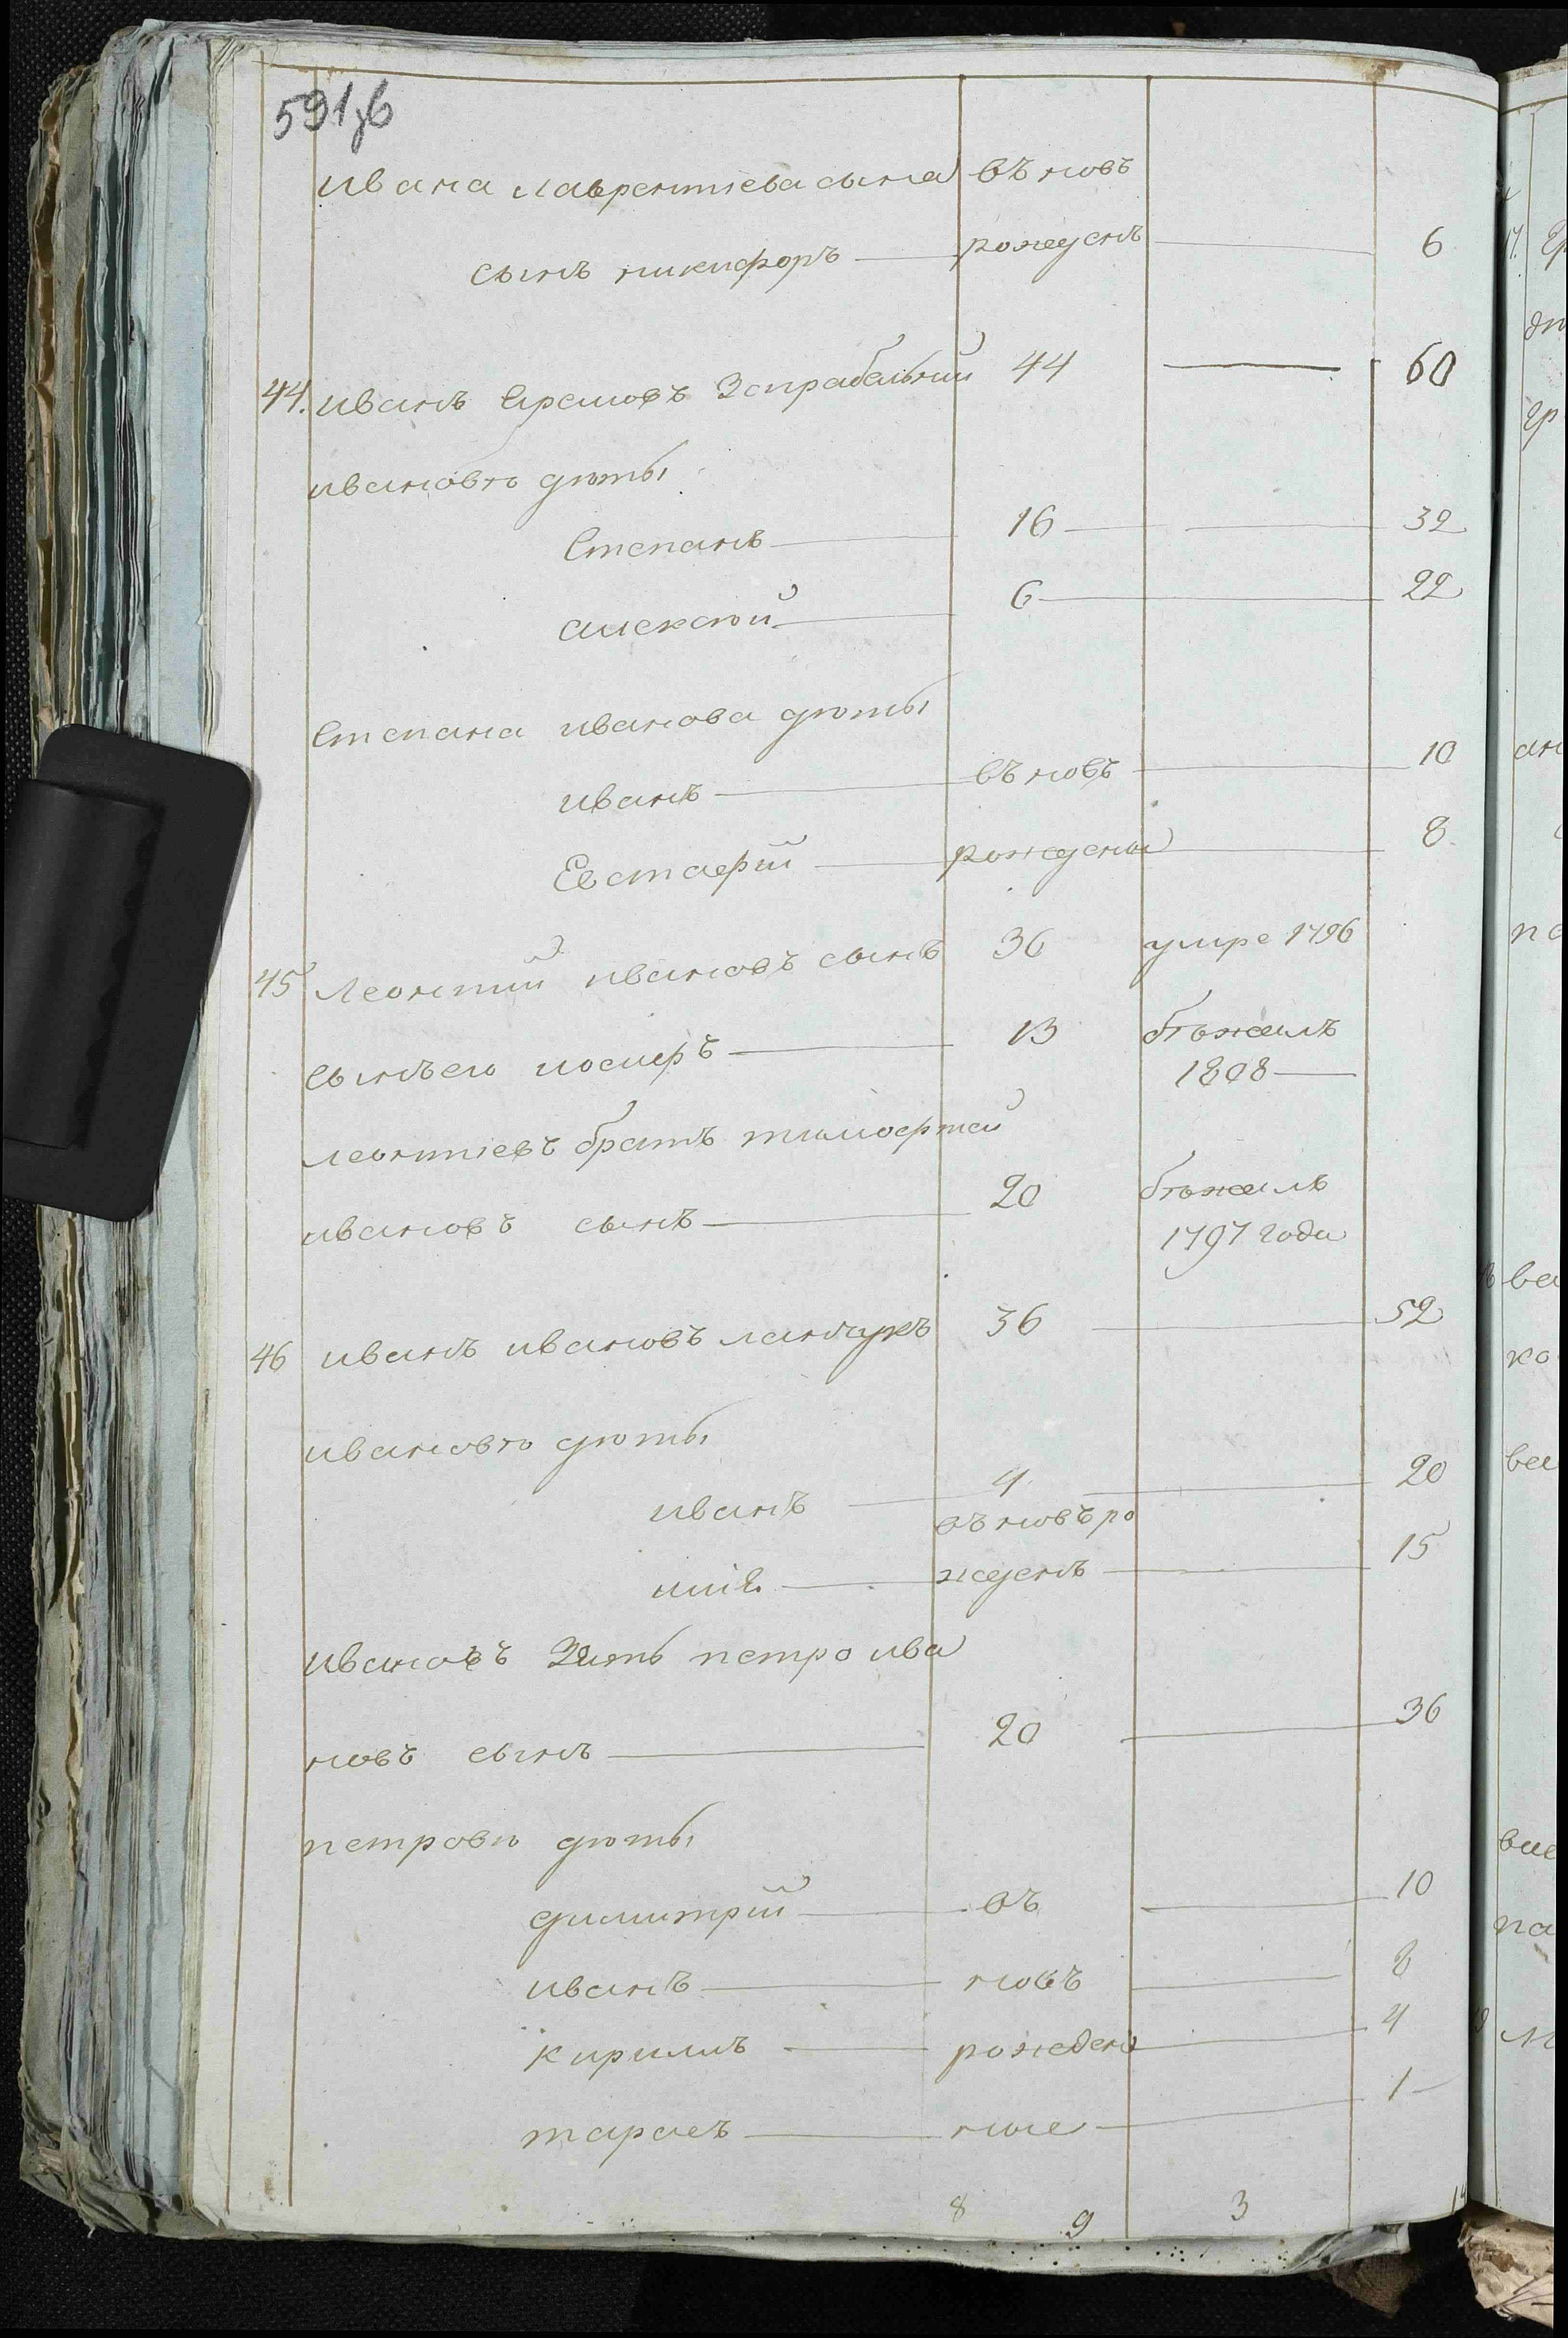 591зб
Ивана Лаврентиева сына въ новь
сынъ Никифоръ рожденъ 6
44. Иванъ Ефремовъ 44 60
Ивановы дѣты
Степанъ 16 32
Алексѣй 6 22
Степана Иванова дѣты
Иванъ въ новь 10
Евстафий рождены 8
45 Леонтий Ивановъ сынъ 36 умре 1796
Сынъ его Иосифъ 13 бѣжалъ
1808
Леонтиевъ братъ Тимофтей
Ивановъ сынъ 20 бѣжалъ
1797 года
46 Иванъ Ивановъ 36 52
Ивановы дѣты
Иванъ 4 20
въ новь ро
Илія жденъ 15
Ивановъ Зять Петро Ива
новъ сынъ 20 36
Петровы дѣты
Димитрий въ 10
Иванъ новь 8
Кирилъ рожден 4
Тарасъ ные 1
8 9 3